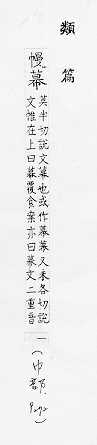 類篇
幔幕
莫半切說文幕也或作幕幕又末各切說
文帷在上曰幕覆食案亦曰幕文二重音
一(巾部,